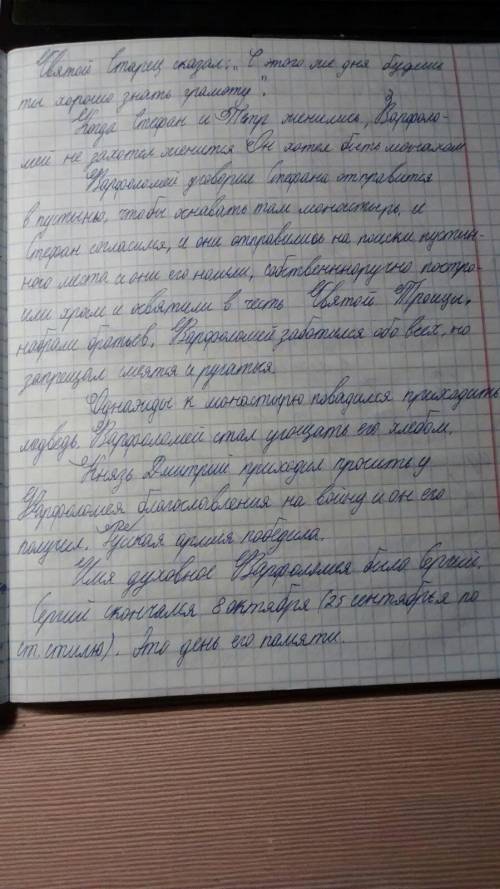 Святой Старец сказал: „ С этого же дня будешь
ты хорошо знать грамоту".
Когда Стефан и Пётр женились, Варфоло-
мей не захотел женится Он хотел быть монахом
Варфоломей уговорил Стефана отправится
в пустыню, чтобы оснавать там монастырь, и
Стефан согласился, и они отправились на поиски пустын-
ного места и они его нашли, собственнноручно постро-
или храм и освятили в честь Святой Троицы,
набрали братьев. Варфоломей заботился обо всех, но
запрещал смеятся и ругаться
Однажды к монастырю повадился приходить
медведь. Варфоломей стал угощать его хлебом.
Князь Дмитрий приходил просить у
Варфоломея благословления на войну и он его
получил. Руская армия победила.
Имя духовное Варфоломея было Сергий.
Сергий скончался 8 октября (25 сентябрья по
ст. стилю). Это день его памяти.